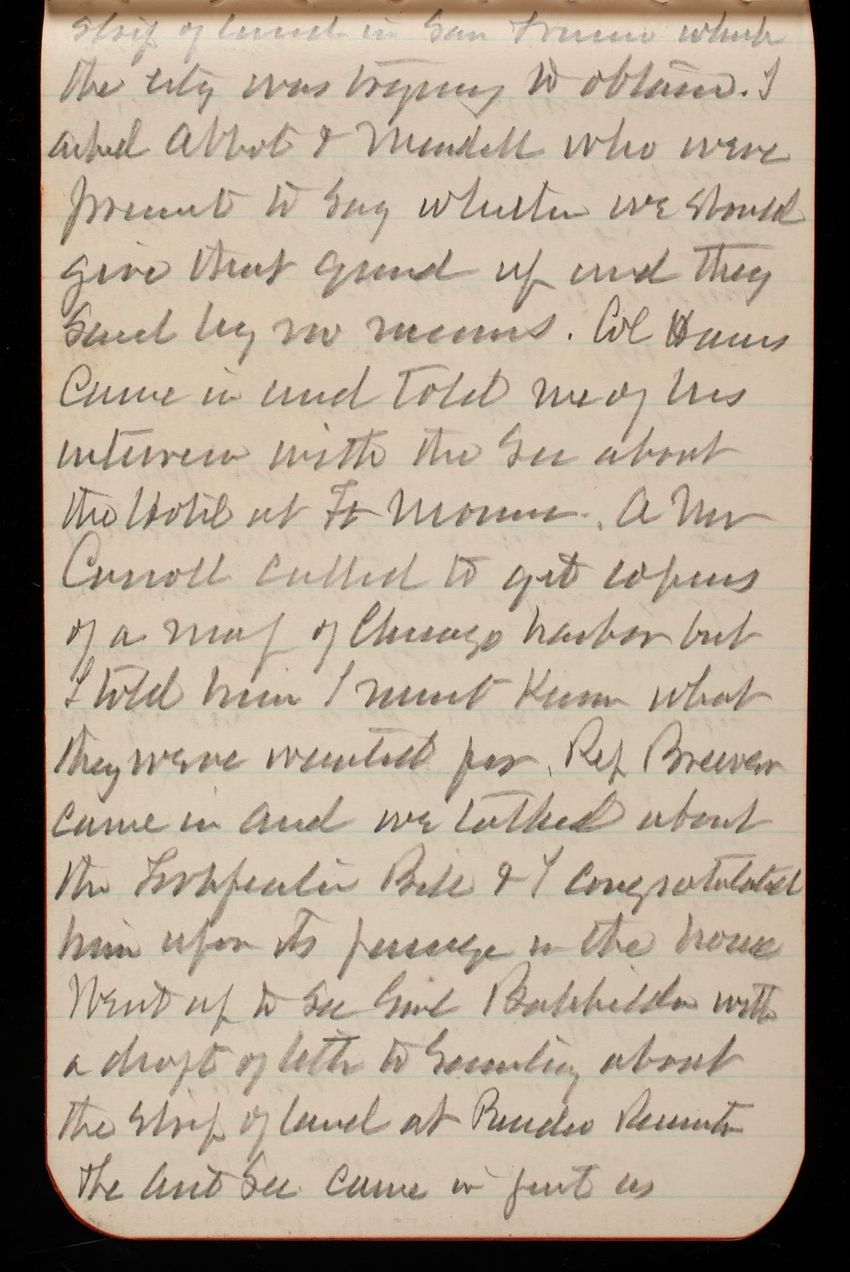 strip of land in San Francisco which
the city was trying to obtain. I
asked Abbot & Mendell who were
present to say whether we should
give that ground up and they
said by no means. Col Hains
came in and told me of his
interview with the Sec about
the Hotel at Ft Monroe. A Mr
Carroll called to get copies
of a map of Chicago harbor but
I told him I must know what
they were wanted for. Rep Brewer
came in and we talked about
the Fortification Bill & I congratulated
him upon its passage in the house
Went up to see Genl Batchelder with
a draft of letter to Secretary about
the strip of land at
the Asst Sec came in just as